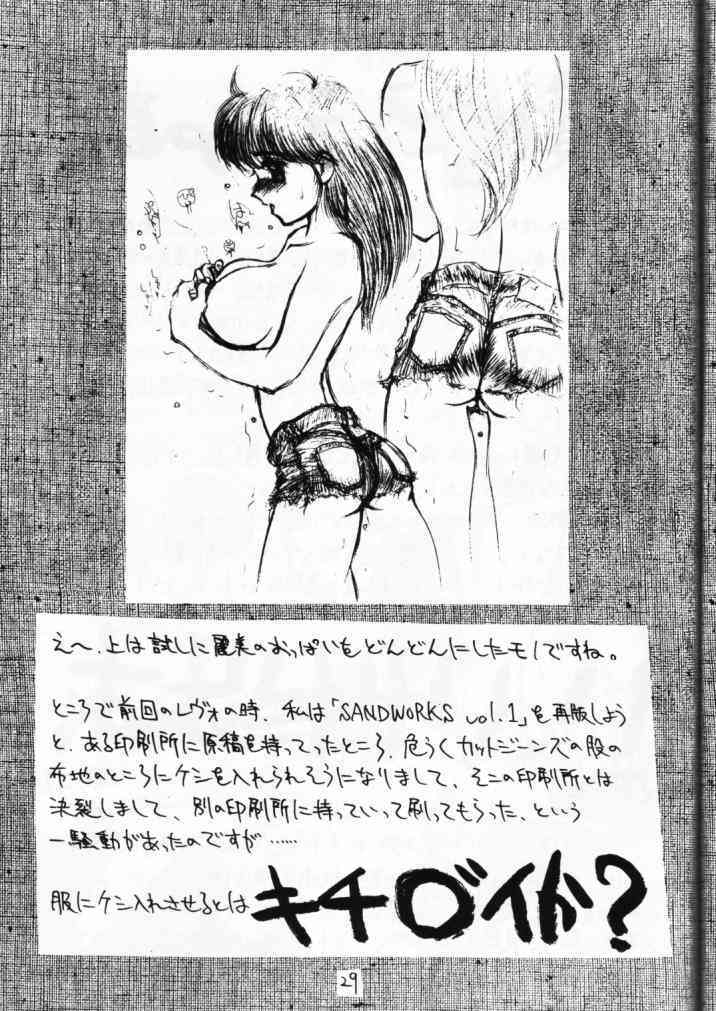 え〜、上は試しに麗美のおっぱいをどんどんにしたモノですね。
ところで前回のレヴォの時、私は「SANDWORKS vol.1」を再販しよう
と、ある印刷所に原稿を持ってったところ、危うくカットジーンズの股の
布地のところにケシを入れられそうになりまして、そこの印刷所とは
決裂しまして、別の印刷所に持っていって刷ってもらった、という
一騒動があったのですが……
服にケシ入れさせるとは キチ〇イか?
29